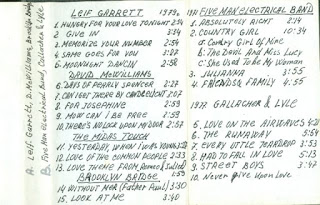 A. Leif Garrett, D. McWilliams, Brooklyn Bridge
B. Five Man Electrical Band, Gallagher & Lyle
LEIF GARRETT 1979
1. HUNGRY FOR YOUR LOVE TONIGHT 2:34
2. GIVE IN 3:34
3. MEMORIZE YOUR NUMBER 2:54
4. SAME GOES FOR YOU 2:27
5. MOONLIGHT DANCIN' 2:58
DAVID McWILLIAMS
6. DAYS OF PEARLY SPENCER 2:27
7. CAN I GET THERE BY CANDLELIGHT
8. FOR JOSEPHINE 2:59
9. HOW CAN I BE FREE 2:59
10. THERE'S NO LOCK UPON MY DOOR 2:57
THE MIDAS TOUCH
11. YESTERDAY, WHEN I WAS YOUNG
12. LOVE OF THE COMMON PEOPLE 2:33
13. LOVE THEME FROM Romeo & Juliet
BROOKLYN BRIDGE
14. WITHOUT HER (Father Paul) 3:30
15. LOOK AT ME 3:40
FIVE MAN ELECTRICAL BAND
1. ABSOLUTELY RIGHT 2:14
2. COUNTRY GIRL 10:34
a. Country Girl of Mine
b. The Devil And Miss Lucy
c. She Used To Be My Woman
3. JULIANNA 3:55
4. FRIENDS & FAMILY 4:55
1977 GALLAGHER & LYLE
5. LOVE ON THE AIRWAVES
6. THE RUNAWAY 5:54
7. EVERY LITTLE TEARDROP 3:53
8. HAD TO FALL IN LOVE 5:13
9. STREET BOYS 3:47
10. Never Give Upon Love